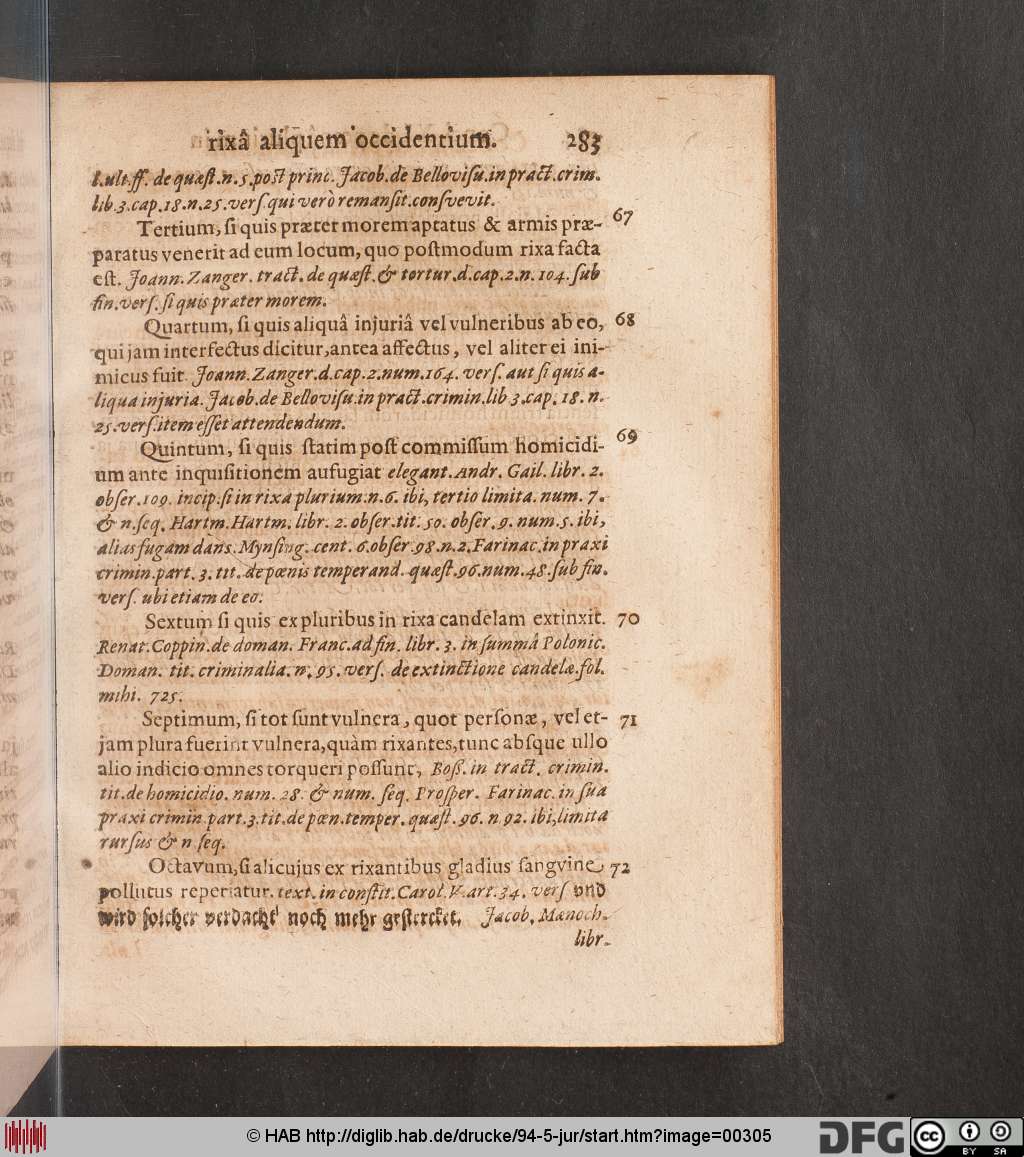 rixâ aliquem occidentium. 283
l.ult.ff. de quæst.n.5.post princ. Jacob.de Bellovisu.in pract.crim.
lib.3.cap.18.n.25.vers.qui verò remansit.consvevit.
Tertium, si quis præter morem aptatus & armis præ- 67
paratus venerit ad eum locum, quo postmodum rixa facta
est. Joann. Zanger. tract. de quæst. & tortur.d.cap.2.n. 104. sub
fin.vers. si quis præter morem.
Quartum, si quis aliquâ injuriâ vel vulneribus ab eo, 68
qui jam interfectus dicitur, antea affectus, vel aliter ei ini-
micus fuit. Joann.Zanger.d.cap.2.num.164. vers. aut si quis a-
liqua injuria. Jacob.de Bellovisu.in pract.crimin.lib 3.cap. 18. n.
25.vers.item esset attendendum.
Quintum, si quis statim post commissum homicidi- 69
um ante inquisitionem aufugiat elegant. Andr. Gail. libr. 2.
obser.109. incip.si in rixa plurium.n.6. ibi, tertio limita. num. 7.
& n.seq. Hartm.Hartm. libr. 2. obser.tit. 50. obser. 9. num.5. ibi,
alias fugam dans. Mynsing. cent. 6.obser.98.n.2.Farinac.in praxi
crimin.part. 3. tit. de pœnis temperand. quæst.96.num.48.sub fin.
vers. ubi etiam de eo.
Sextum si quis ex pluribus in rixa candelam extinxit. 70
Renat.Coppin.de doman. Franc.ad fin. libr. 3. in summâ Polonic.
Doman. tit. criminalia. n. 95. vers. de extinctione candelæ.fol.
mihi. 725.
Septimum, si tot sunt vulnera, quot personæ, vel et- 71
jam plura fuerint vulnera, quàm rixantes, tunc absque ullo
alio indicio omnes torqueri possunt, Boß. in tract. crimin.
tit.de homicidio. num. 28. & num. seq. Prosper. Farinac. in sua
praxi crimin part.3.tit.de pœn.temper. quæst. 96. n 92. ibi,limita
rursus & n seq.
Octavum, si alicujus ex rixantibus gladius sangvine 72
pollutus reperiatur. text. in constit. Carol. V. art. 34. vers und
wird solcher verdacht noch mehr gestercket. Jacob. Mænoch.
libr.
© HAB http://diglib.hab.de/drucke/94-5-jur/start.htm?image=00305
DFG
cc BY SA